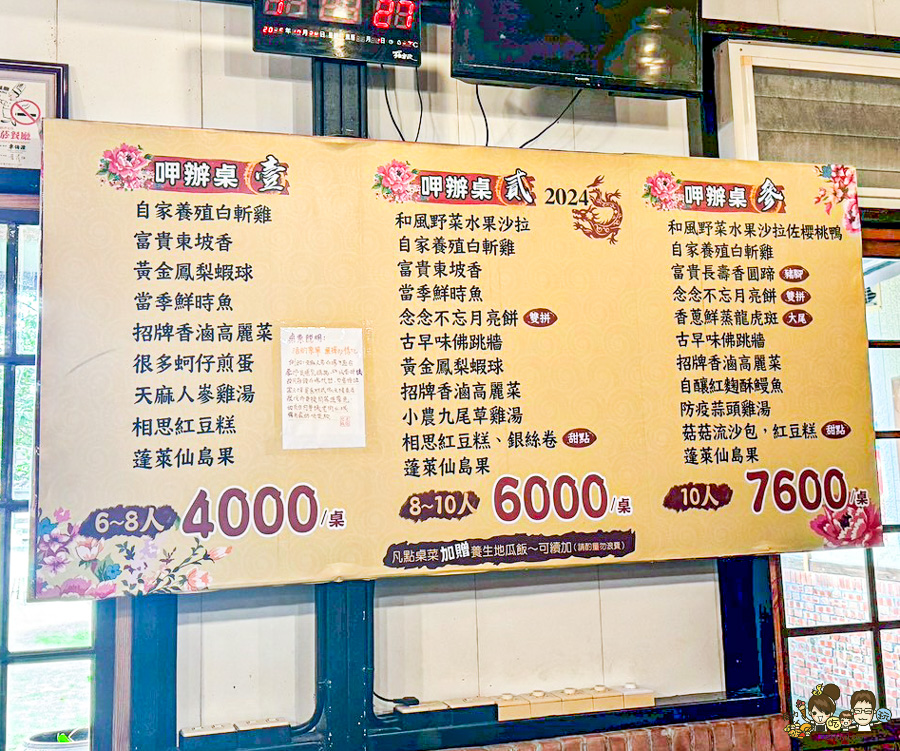 呷辦桌 壹
自家養殖白斬雞
富貴東坡香
黃金鳳梨蝦球
當季鮮時魚
招牌香滷高麗菜
很多蚵仔煎蛋
天麻人參雞湯
相思紅豆糕
蓬萊仙島果
6~8人 4000/桌
呷辦桌 貳 2024
和風野菜水果沙拉
自家養殖白斬雞
富貴東坡香
當季鮮時魚
念念不忘月亮餅 雙拼
古早味佛跳牆
黃金鳳梨蝦球
招牌香滷高麗菜
小農九尾草雞湯
相思紅豆糕、銀絲卷 甜點
蓬萊仙島果
8~10人 6000/桌
呷辦桌 參
和風野菜水果沙拉佐櫻桃鴨
自家養殖白斬雞
富貴長壽香圓蹄 豬腳
念念不忘月亮餅 雙拼
香蔥鮮蒸龍虎斑 大尾
古早味佛跳牆
招牌香滷高麗菜
自釀紅麴酥鰻魚
防疫蒜頭雞湯
菇菇流沙包，紅豆糕 甜點
蓬萊仙島果
10人 7600/桌
凡點桌菜加贈養生地瓜飯~可續加(請酌量勿浪費)